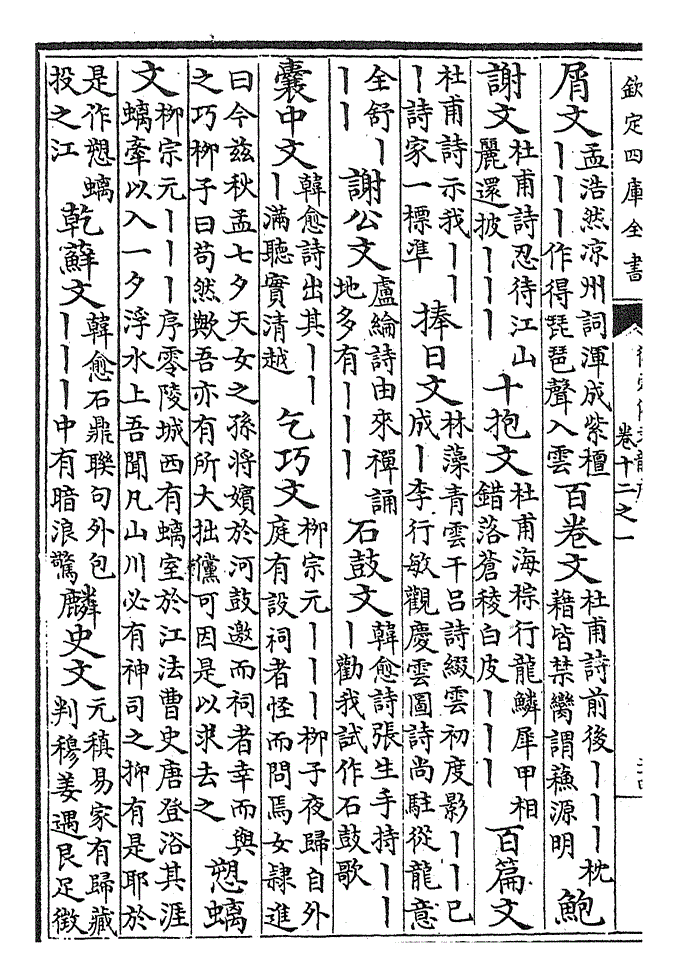 欽定四庫全書
卷十二之一
屑文
孟浩然凉州詞渾成紫檀
丨丨丨作得琵琶聲入雲
百卷文
杜甫詩前後丨丨丨枕
藉皆禁臠謂蘓源明
鮑
謝文
杜甫詩忍待江山
麗還披丨丨丨
十抱文
杜甫海棕行龍鱗犀甲相
錯落蒼稜白皮丨丨丨
百篇文
杜甫詩示我丨丨
丨詩家一標準
捧日文
林藻青雲干吕詩綴雲初度影丨丨已
成丨李行敏觀慶雲圖詩尚駐從龍意
全舒丨
丨丨
謝公文
盧綸詩由來禪誦
地多有丨丨丨
石鼓文
韓愈詩張生手持丨丨
丨勸我試作石鼓歌
囊中文
韓愈詩出其丨丨
丨滿聽實清越
乞巧文
柳宗元丨丨丨柳子夜歸自外
庭有設祠者怪而問焉女隷進
曰今兹秋孟七夕天女之孫將嬪於河鼓邀而祠者幸而與
之巧柳子曰苟然歟吾亦有所大拙儻可因是以求去之
愬螭
文
柳宗元丨丨丨序零陵城西有螭室於江法曹史唐登浴其涯
螭牽以入一夕浮水上吾聞凡山川必有神司之抑有是耶於
是作愬螭
投之江
乾蘚文
韓愈石鼎聯句外包
丨丨丨中有暗浪驚
麟史文
元稹易家有歸藏
判穆姜遇艮足徵